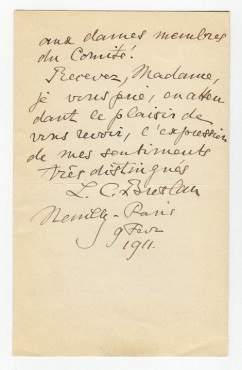 aux dames membres
du Comité.
Recevez, Madame,
je vous prie, en atten
dant le plaisir de
vous revoir, l'expression
de mes sentiments
très distingués
L. C. Breslau
Neuilly-Paris
9 Fevr
1911.